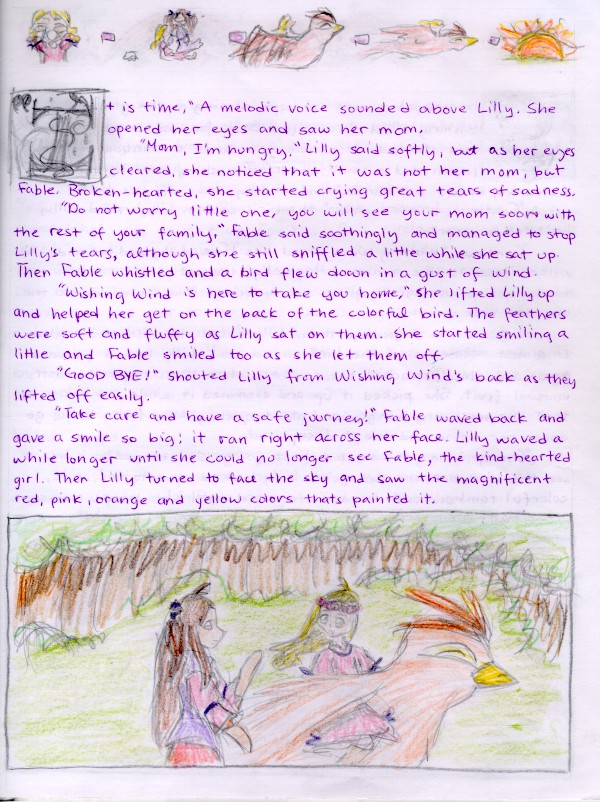 It is time," A melodic voice sounded above Lilly. She
opened her eyes and saw her mom.
"Mom, I'm hungry." Lilly said softly, but as her eyes
cleared, she noticed that it was not her mom, but
Fable. Broken-hearted, she started crying great tears of sadness.
"Do not worry little one, you will see your mom soon with
the rest of your family," Fable said soothingly and managed to stop
Lilly's tears, although she still sniffled a little while she sat up.
Then Fable whistled and a bird flew down in a gust of wind.
"Wishing Wind is here to take you home," She lifted Lilly up
and helped her get on the back of the colorful bird. The feathers
were soft and fluffy as Lilly sat on them. She started smiling a
little and Fable smiled too as she let them off.
"GOOD BYE!" Shouted Lilly from Wishing Wind's back as they
lifted off easily.
"Take care and have a safe journey!" Fable waved back and
gave a smile so big; it ran right across her face. Lilly waved a
while longer until she could no longer see Fable, the kind-hearted
girl. Then Lilly turned to face the sky and saw the magnificent
red, pink, orange and yellow colors thats painted it.